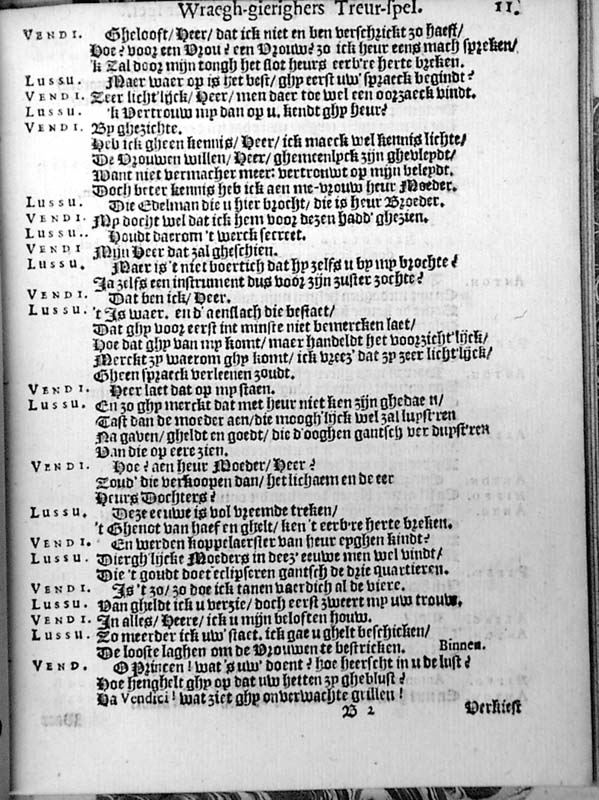 Wraegh-gierighers Treur-spel. 11.
VENDI. Ghelooft/ Heer/ dat ick niet en ben verschrickt zo haest/
Hoe? voor een Vrou? een Vrouw? zo ick heur eens mach spreken/
'k Zal door mijn tongh het slot heurs eerb're herte breken.
LUSSU. Maer waer op is het best/ ghy eerst uw' spraeck begindt?
VENDI. Zeer licht'lijck/ Heer/ men daer toe wel een oorzaeck vindt.
LUSSU. 'k Vertrouw my dan op u. kendt ghy heur?
VENDI. By ghezichte.
Heb ick gheen kennis/ Heer/ ick maeck wel kennis lichte/
De Vrouwen willen/ Heer/ ghemeenlyck zijn ghevleydt/
Want niet vermacher meer: vertrouwt op mijn beleydt.
Doch beter kennis heb ick aen me-vrouw heur Moeder.
LUSSU. Die Edelman die u hier brocht/ die is heur Broeder.
VENDI. My docht wel dat ick hem voor dezen hadd' ghezien.
LUSSU.. Houdt daerom 't werck secreet.
VENDI Mijn Heer dat zal gheschien.
LUSSU. Maer is 't niet boertich dat hy zelfs u by my brochte?
Ja zelfs een instrument dus voor zijn zuster zochte?
VENDI. Dat ben ick/ Heer.
LUSSU. 't Is waer. en d' aenslach die bestaet/
Dat ghy voor eerst int minste niet bemercken laet/
Hoe dat ghy van my komt/ maer handeldt het voorzicht'lijck/
Merckt zy waerom ghy komt/ ick vreez' dat zy zeer licht'lijck/
Gheen spraeck verleenen zoudt.
VENDI. Heer laet dat op my staen.
LUSSU. En zo ghy merckt dat met heur niet ken zijn ghedaen/
Tast dan de moeder aen/ die moogh'lijck wel zal luyst'ren
Na gaven/ gheldt en goedt/ die d'ooghen gantsch verduyst'ren
Van die op eere zien.
VENDI. Hoe? aen heur Moeder/ Heer?
Zoud' die verkoopen dan/ het lichaem en de eer
Heurs Dochters?
LUSSU. Deze eeuwe is vol vreemde treken/
't Ghenot van haef en ghelt/ ken 't eerb're herte breken.
VENDI. En werden koppelaerster van heur eyghen kindt?
LUSSU. Diergh'lijcke Moeders in deez' eeuwe men wel vindt/
Die 't goudt doet eclipseren gantsch de drie quartieren.
VENDI. Is 't zo/ zo doe ick tanen vaerdich al de viere.
LUSSU. Van gheldt ick u verzie/ doch eerst zweert my uw trouw.
VENDI. In alles/ Heere/ ick u mijn beloften houw.
LUSSU. Zo meerder ick uw' staet. ick gae u ghelt beschicken/
De looste laghen om de Vrouwen te bestricken. Binnen.
VEND. O Princen! wat 's uw' doent? hoe heerscht in u de lust?
Hoe henghelt ghy op dat uw hetten zy gheblust?
Ha Vendici! wat ziet ghy onverwachte grillen!
B 2 Verkiest